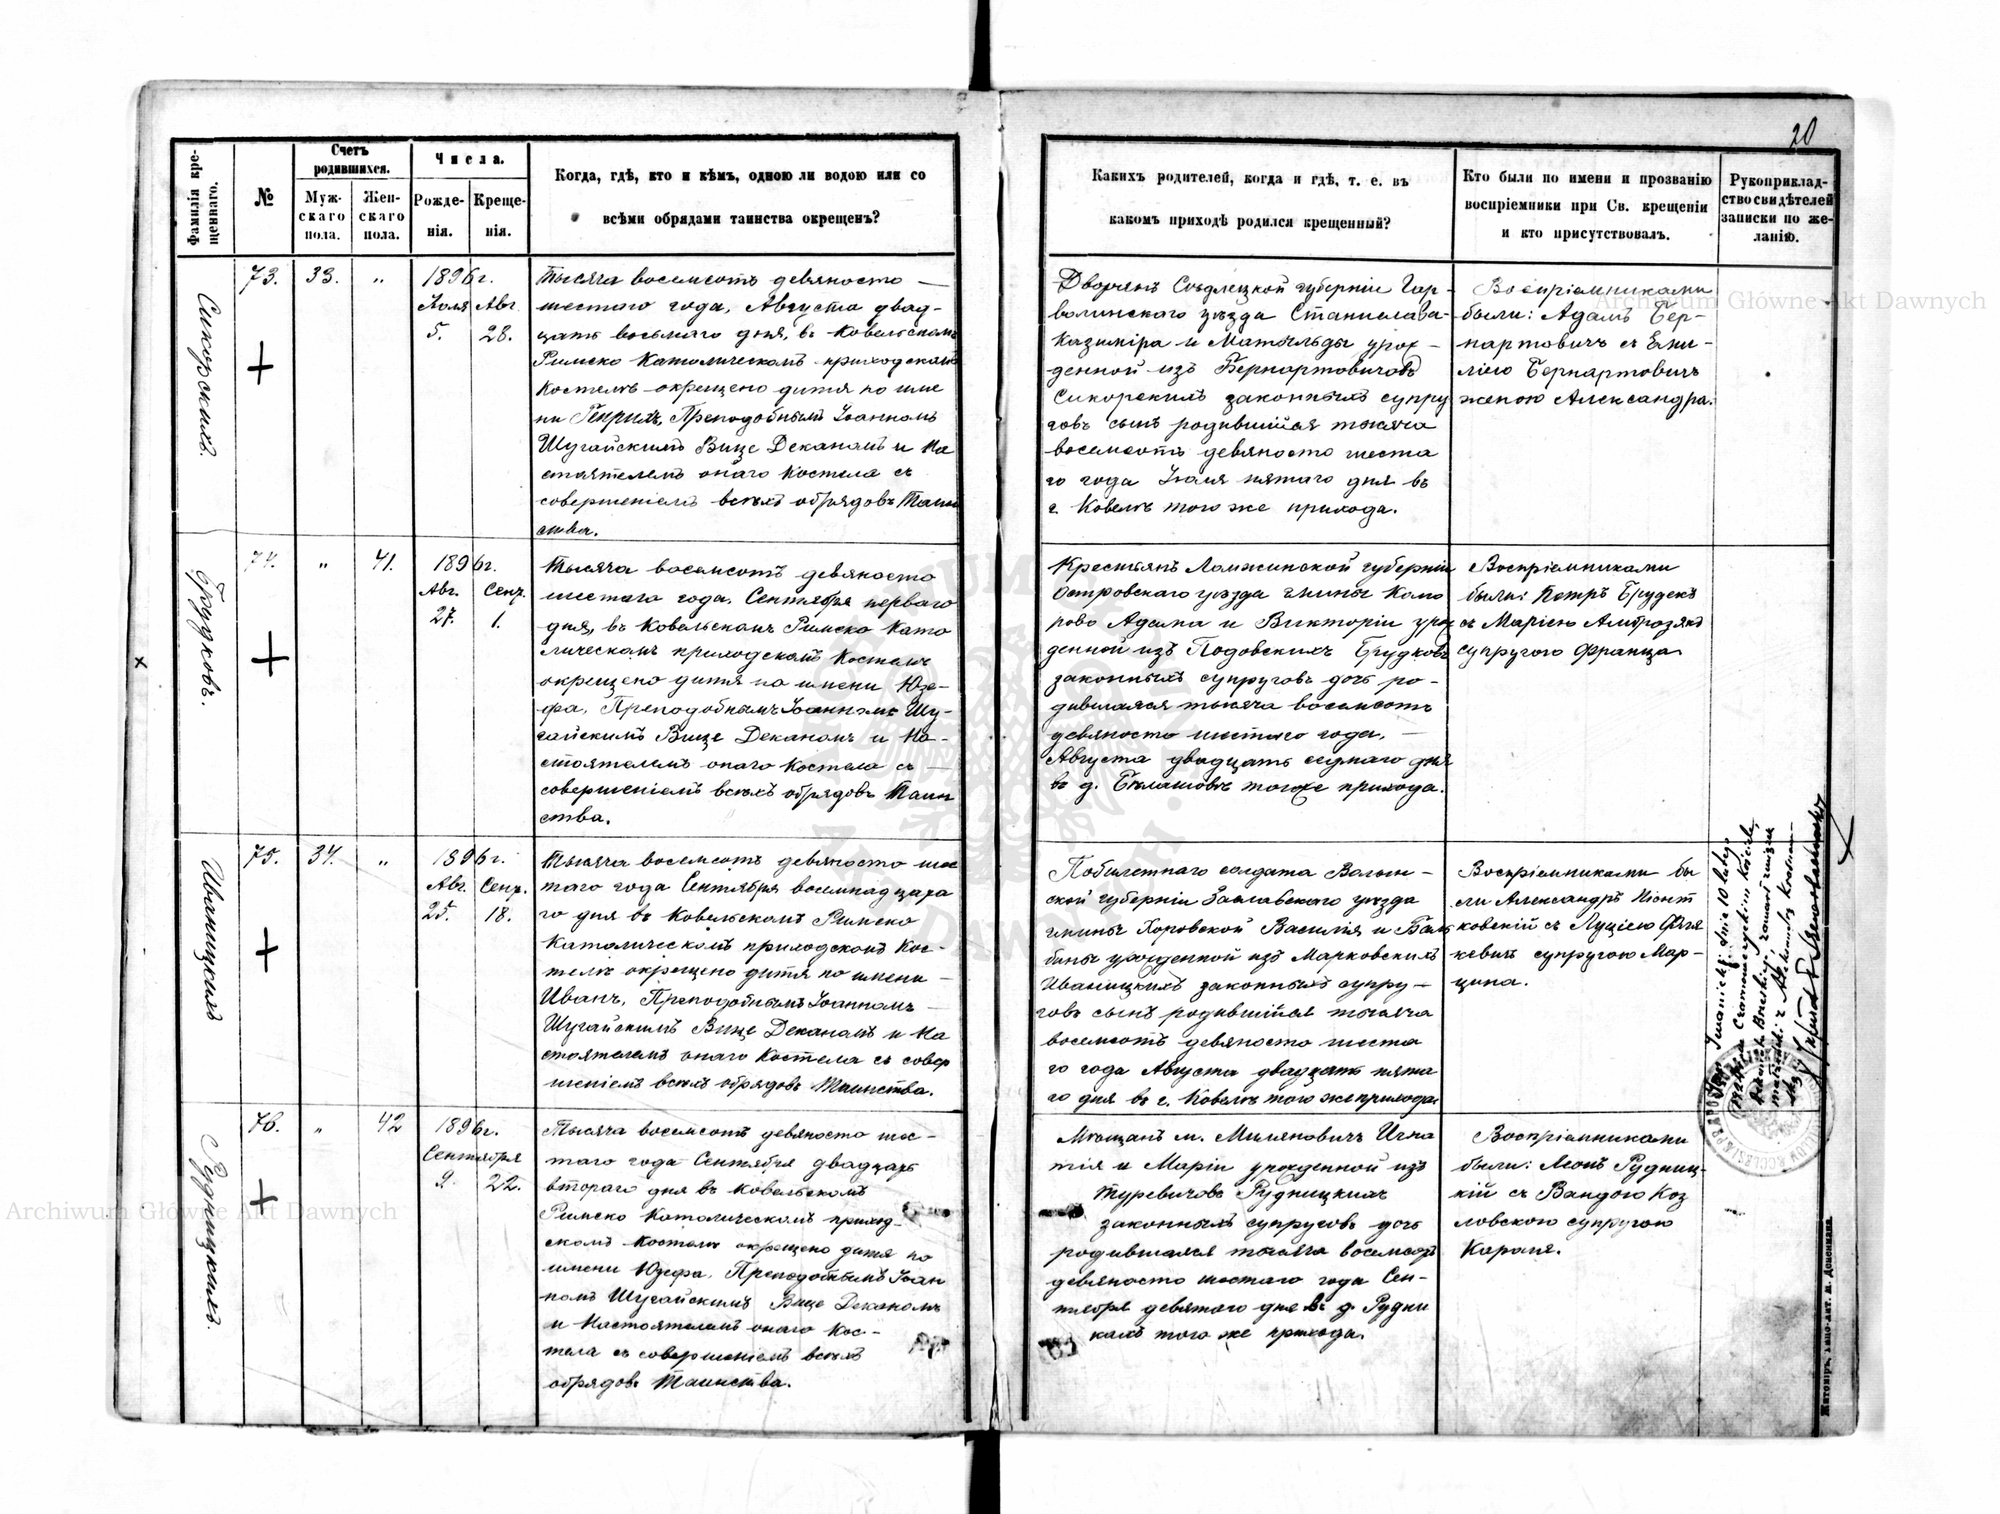 20
Фамилія кре-
щеннаго.
№
Счетъ
родившихся.
Муж-
скаго
пола.
Жен-
скаго
пола.
Числа.
Рожде-
нія.
Креще-
нія.
Когда, гдѣ, кто и кѣмъ, одною ли водою или со
всѣми обрядами таинства окрещенъ?
Какихъ родителей, когда и гдѣ, т. е. въ
какомъ приходѣ родился крещенный?
Кто были по имени и прозванію
воспріемники при Св. крещеніи
и кто присутствовалъ.
Рукоприклад-
ство свидѣтелей
записки по же-
ланію.
Сикорскихъ.
73.
33.
"
1896 г.
Іюля Авг.
5. 28.
Тысяча восемсотъ девяносто —
шестаго года, Августа двад-
цать восьмаго дня, въ Ковельскомъ
Римско Католическомъ приходскомъ
Костелѣ окрещено дитя по име
ни Генрихъ, Преподобнымъ Іоанномъ
Шугайскимъ Вице Деканомъ и На
стоятелемъ онаго Костела съ
совершеніемъ всѣхъ обрядовъ Таин
ства.
Дворянъ Сѣдлецкой губерніи Гар-
волинскаго уѣзда Станислава-
Казиміра и Матильды урож-
денной изъ Бернартовичовъ
Сикорскихъ законныхъ супру
говъ сынъ родившійся тысяча
восемсотъ девяносто шеста
го года Іюля пятаго дня въ
г. Ковелѣ того же прихода.
Воспріемниками
были: Адамъ Бер-
нартовичъ съ Эми-
ліею Бернартовичъ
женою Александра.
Брудковъ.
74.
"
41.
1896 г.
Авг. Сент.
27. 1.
Тысяча восемсотъ девяносто
шестаго года, Сентября перваго
дня, въ Ковельскомъ Римско Като
лическомъ приходскомъ Костелѣ
окрещено дитя по имени Юзе-
фа, Преподобнымъ Іоанномъ Шу-
гайскимъ Вице Деканомъ и На-
стоятелемъ онаго Костела съ —
совершеніемъ всѣхъ обрядовъ Таин
ства.
Крестьянъ Ломжинской губерніи
Островскаго уѣзда гмины Комо
рово Адама и Викторіи урож
денной изъ Подовскихъ Брудковъ
законныхъ супруговъ дочь ро-
дившаяся тысяча восемсотъ
девяносто шестаго года, —
Августа двадцать седмаго дня
въ д. Бѣлашовѣ тогоже прихода.
Воспріемниками
были: Петръ Брудекъ
съ Маріею Амброзякъ
супругою Франца.
Иваницкихъ
75.
34.
"
1896 г.
Авг. Сент.
25. 18.
Тысяча восемсотъ девяносто шес
таго года Сентября восемнадцата
го дня въ Ковельскомъ Римско
Католическомъ приходскомъ Кос-
телѣ окрещено дитя по имени —
Иванъ, Преподобнымъ Іоанномъ —
Шугайскимъ Вице Деканомъ и На
стоятелемъ онаго Костела съ совер
шеніемъ всѣхъ обрядовъ Таинства.
Побилетнаго солдата Волын-
ской губерніи Заславскаго уѣзда
гмины Хоровской Василія и Баль
бины урожденной изъ Марковскихъ
Иваницкихъ законныхъ супру-
говъ сынъ родившійся тысяча
восемсотъ девяносто шеста
го года Августа двадцать пята
го дня въ г. Ковелѣ того же прихода
Воспріемниками бы
ли Александръ
съ Луціею
супругою Мар-
цина.
Рудницкихъ.
76.
"
42
1896 г.
Сентября
9. 22.
Тысяча восемсотъ девяносто шес-
таго года Сентября двадцать
втораго дня въ Ковельскомъ
Римско Католическомъ приход-
скомъ Костелѣ окрещено дитя по
имени Юзефа, Преподобнымъ Іоан
номъ Шугайскимъ Вице Деканомъ
и Настоятелемъ онаго Кос-
тела съ совершеніемъ всѣхъ
обрядовъ Таинства.
Мѣщанъ м. Миляновичъ Игна
тія и Маріи урожденной изъ
Туревичовъ Рудницкихъ
законныхъ супруговъ дочь
родившаяся тысяча восемсотъ
девяносто шестаго года Сен-
тября девятаго дня въ д. Рудни
кахъ того же прихода.
Воспріемниками
были: Леонъ Рудниц-
кій съ Вандою Коз
ловскою супругою
Кароля.
Archiwum Główne Akt Dawnych
Archiwum Główne Akt Dawnych